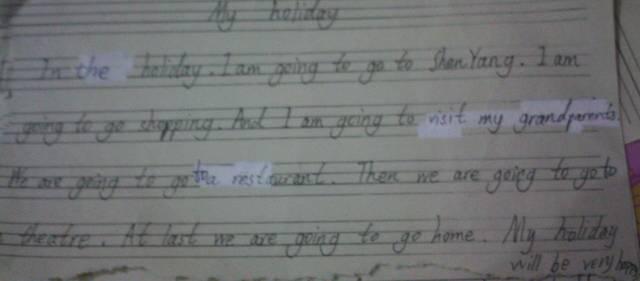 My holiday
In the holiday. I am going to go to ShenYang. I am
going to go shopping. And I am going to visit my grandparents.
We are going to go to a restaurant. Then we are goicg to go to
theatre. At last we are going to go home. My holiday
will be very happy